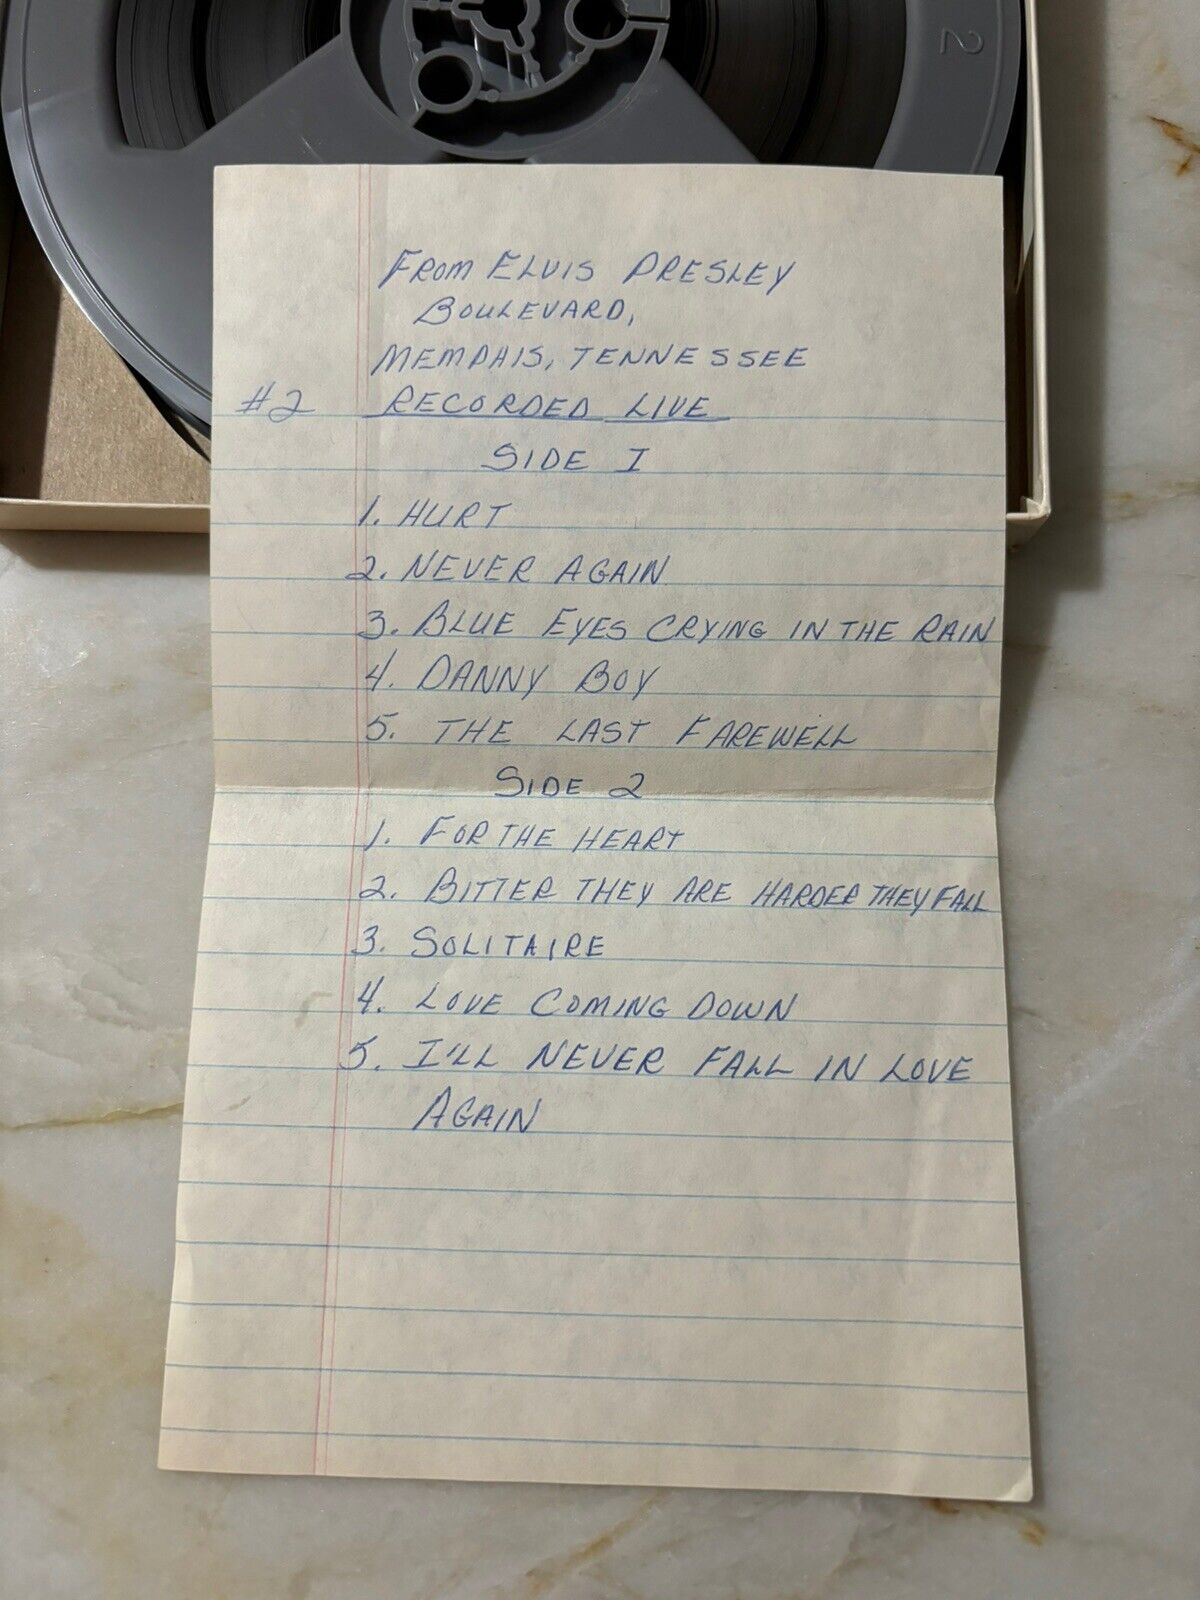 2
FROM ELVIS PRESLEY
BOULEVARD,
MEMPHIS, TENNESSEE
#2 RECORDED LIVE
SIDE I
1. HURT
2. NEVER AGAIN
3. BLUE EYES CRYING IN THE RAIN
4. DANNY BOY
5. THE LAST FAREWELL
SIDE 2
1. FOR THE HEART
2. BITTER THEY ARE HARDER THEY FALL
3. SOLITAIRE
4. LOVE COMING DOWN
5. I'LL NEVER FALL IN LOVE
AGAIN